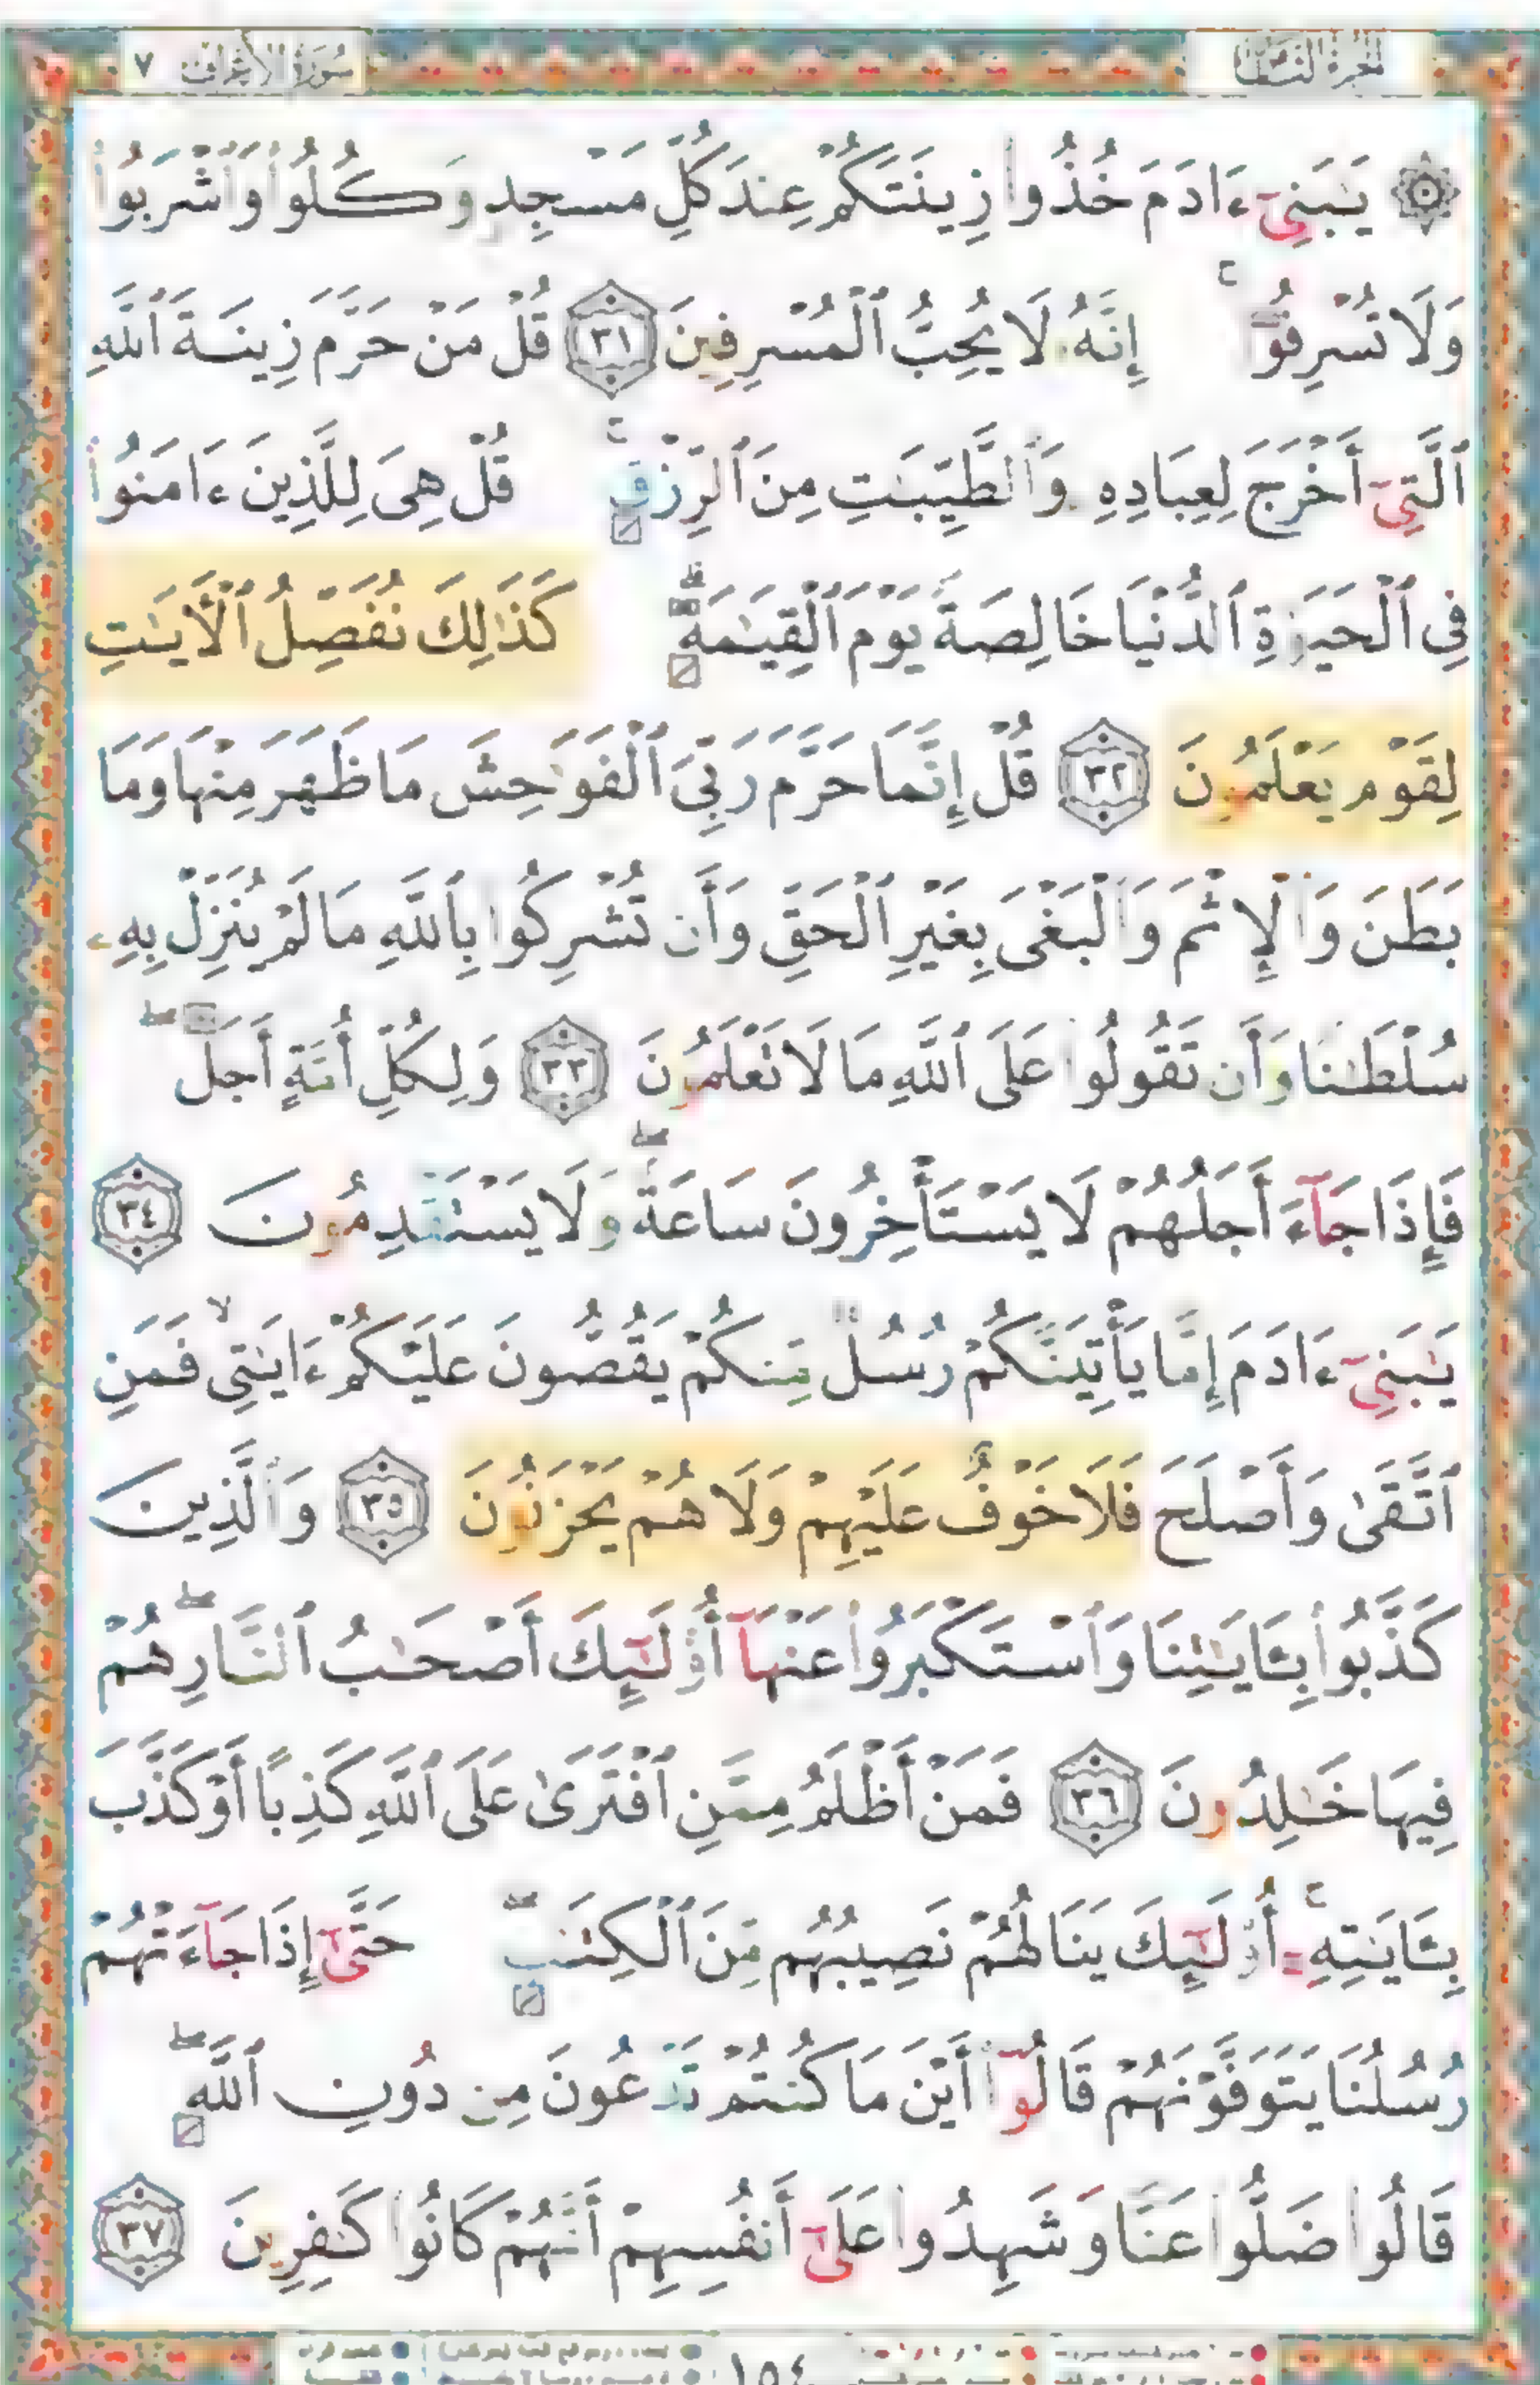 سُورَةُ الأَعْرَافِ ٧
الجزء الثامن
۞ يَـٰبَنِىٓ ءَادَمَ خُذُوا۟ زِينَتَكُمْ عِندَ كُلِّ مَسْجِدٍ وَكُلُوا۟ وَٱشْرَبُوا۟
وَلَا تُسْرِفُوٓا۟ ۚ إِنَّهُۥ لَا يُحِبُّ ٱلْمُسْرِفِينَ ٣١ قُلْ مَنْ حَرَّمَ زِينَةَ ٱللَّهِ
ٱلَّتِىٓ أَخْرَجَ لِعِبَادِهِۦ وَٱلطَّيِّبَـٰتِ مِنَ ٱلرِّزْقِ ۚ قُلْ هِىَ لِلَّذِينَ ءَامَنُوا۟
فِى ٱلْحَيَوٰةِ ٱلدُّنْيَا خَالِصَةً يَوْمَ ٱلْقِيَـٰمَةِ ۗ كَذَٰلِكَ نُفَصِّلُ ٱلْـَٔايَـٰتِ
لِقَوْمٍ يَعْلَمُونَ ٣٢ قُلْ إِنَّمَا حَرَّمَ رَبِّىَ ٱلْفَوَٰحِشَ مَا ظَهَرَ مِنْهَا وَمَا
بَطَنَ وَٱلْإِثْمَ وَٱلْبَغْىَ بِغَيْرِ ٱلْحَقِّ وَأَن تُشْرِكُوا۟ بِٱللَّهِ مَا لَمْ يُنَزِّلْ بِهِۦ
سُلْطَـٰنًا وَأَن تَقُولُوا۟ عَلَى ٱللَّهِ مَا لَا تَعْلَمُونَ ٣٣ وَلِكُلِّ أُمَّةٍ أَجَلٌ ۖ
فَإِذَا جَآءَ أَجَلُهُمْ لَا يَسْتَأْخِرُونَ سَاعَةً ۖ وَلَا يَسْتَقْدِمُونَ ٣٤
يَـٰبَنِىٓ ءَادَمَ إِمَّا يَأْتِيَنَّكُمْ رُسُلٌ مِّنكُمْ يَقُصُّونَ عَلَيْكُمْ ءَايَـٰتِى ۙ فَمَنِ
ٱتَّقَىٰ وَأَصْلَحَ فَلَا خَوْفٌ عَلَيْهِمْ وَلَا هُمْ يَحْزَنُونَ ٣٥ وَٱلَّذِينَ
كَذَّبُوا۟ بِـَٔايَـٰتِنَا وَٱسْتَكْبَرُوا۟ عَنْهَآ أُو۟لَـٰٓئِكَ أَصْحَـٰبُ ٱلنَّارِ ۖ هُمْ
فِيهَا خَـٰلِدُونَ ٣٦ فَمَنْ أَظْلَمُ مِمَّنِ ٱفْتَرَىٰ عَلَى ٱللَّهِ كَذِبًا أَوْ كَذَّبَ
بِـَٔايَـٰتِهِۦٓ ۚ أُو۟لَـٰٓئِكَ يَنَالُهُمْ نَصِيبُهُم مِّنَ ٱلْكِتَـٰبِ ۖ حَتَّىٰٓ إِذَا جَآءَتْهُمْ
رُسُلُنَا يَتَوَفَّوْنَهُمْ قَالُوٓا۟ أَيْنَ مَا كُنتُمْ تَدْعُونَ مِن دُونِ ٱللَّهِ ۖ
قَالُوا۟ ضَلُّوا۟ عَنَّا وَشَهِدُوا۟ عَلَىٰٓ أَنفُسِهِمْ أَنَّهُمْ كَانُوا۟ كَـٰفِرِينَ ٣٧
١٥٤